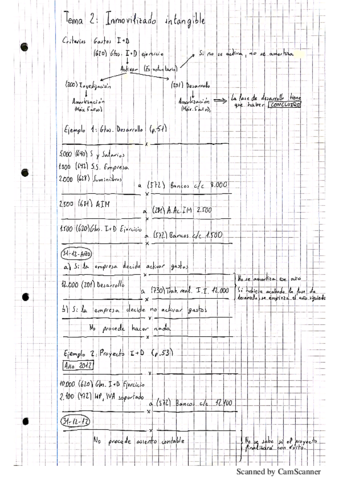 Tema 2: Inmovilizado intangible
Criterios Gastos I+D
(620) Gtos. I+D ejercicio → Si no se activa, no se amortiza
Activar (Es voluntario)
(200) Investigación (201) Desarrollo
Amortización (Máx. 5 años) Amortización (Máx. 5 años) ⟹ La fase de desarrollo tiene que haber CONCLUIDO
Ejemplo 1: Gtos. Desarrollo (p.51)
x
5.000 (640) S y Salarios
(642) S.S. Empresa
2.000 (628) Suministros
a (572) Bancos c/c
x
2.500 (681) AIM
a (281) A.Ac. IM 2.500
x
1.500 (620) Gto. I+D Ejercicio
a (572) Bancos c/c 1.500
31-12-
a) Si la empresa decide activar gastos
12.000 (201) Desarrollo
a (730) Trab. real. I.I. 12.000
No se amortiza ese año
Si hubiera acabado la fase de desarrollo se empieza el año siguiente
b) Si la empresa decide no activar gastos
No procede hacer nada
x
Ejemplo 2: Proyecto I+D (p.53)
Año 2012
10.000 (620) Gto. I+D Ejercicio
2.100 (472) HP, IVA soportado
a (572) Bancos c/c 12.100
x
31-12-12
No procede asiento contable
No se sabe si el proyecto finalizará con éxito.
Scanned by CamScanner